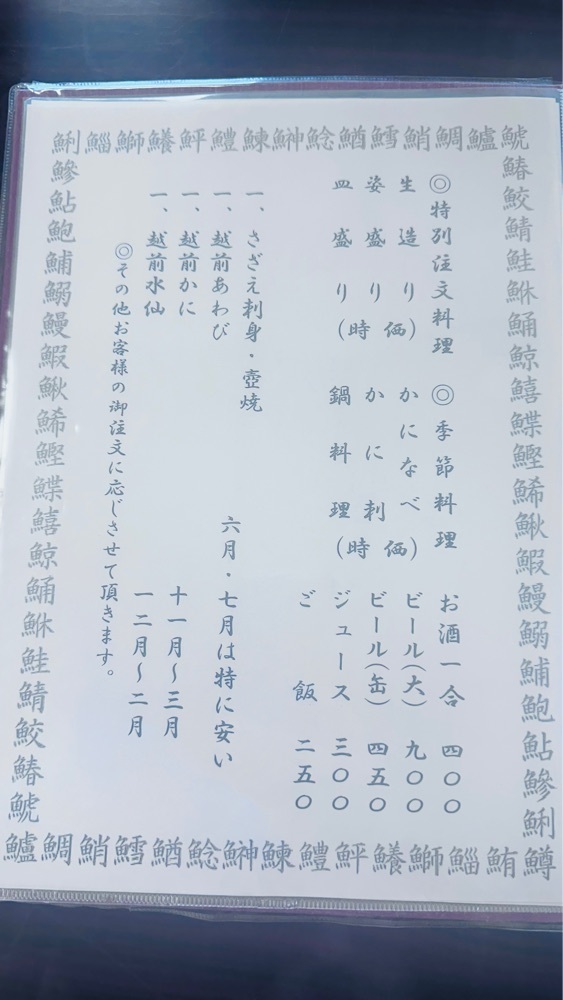 鯏鯔鰤鱶鮃鱧鰊鰰鯰鰌鱈鮹鯛鱸鯱
鰆鮫鯖鮭鮴鯒鯨鱚鰈鰹鯑鰍鰕鰻鰯鯆鮑鮎鰺鯏
◎特別注文料理
生造り
姿盛り
皿盛り
（時価）
◎季節料理
かになべ
かに刺
鍋料理
（時価）
お酒一合 四〇〇
ビール(大) 九〇〇
ビール(缶) 四五〇
ジュース 三〇〇
ご飯 二五〇
一、さざえ刺身・壺焼
一、越前あわび 六月・七月は特に安い
一、越前かに 十一月～三月
一、越前水仙 一二月～二月
◎その他お客様の御注文に応じさせて頂きます。
鰺鮎鮑鯆鰯鰻鰕鰍鯑鰹鰈鱚鯨鯒鮴鮭鯖鮫鰆鯱
鱸鯛鮹鱈鰌鯰鰰鰊鱧鮃鱶鰤鯔鮪鱒